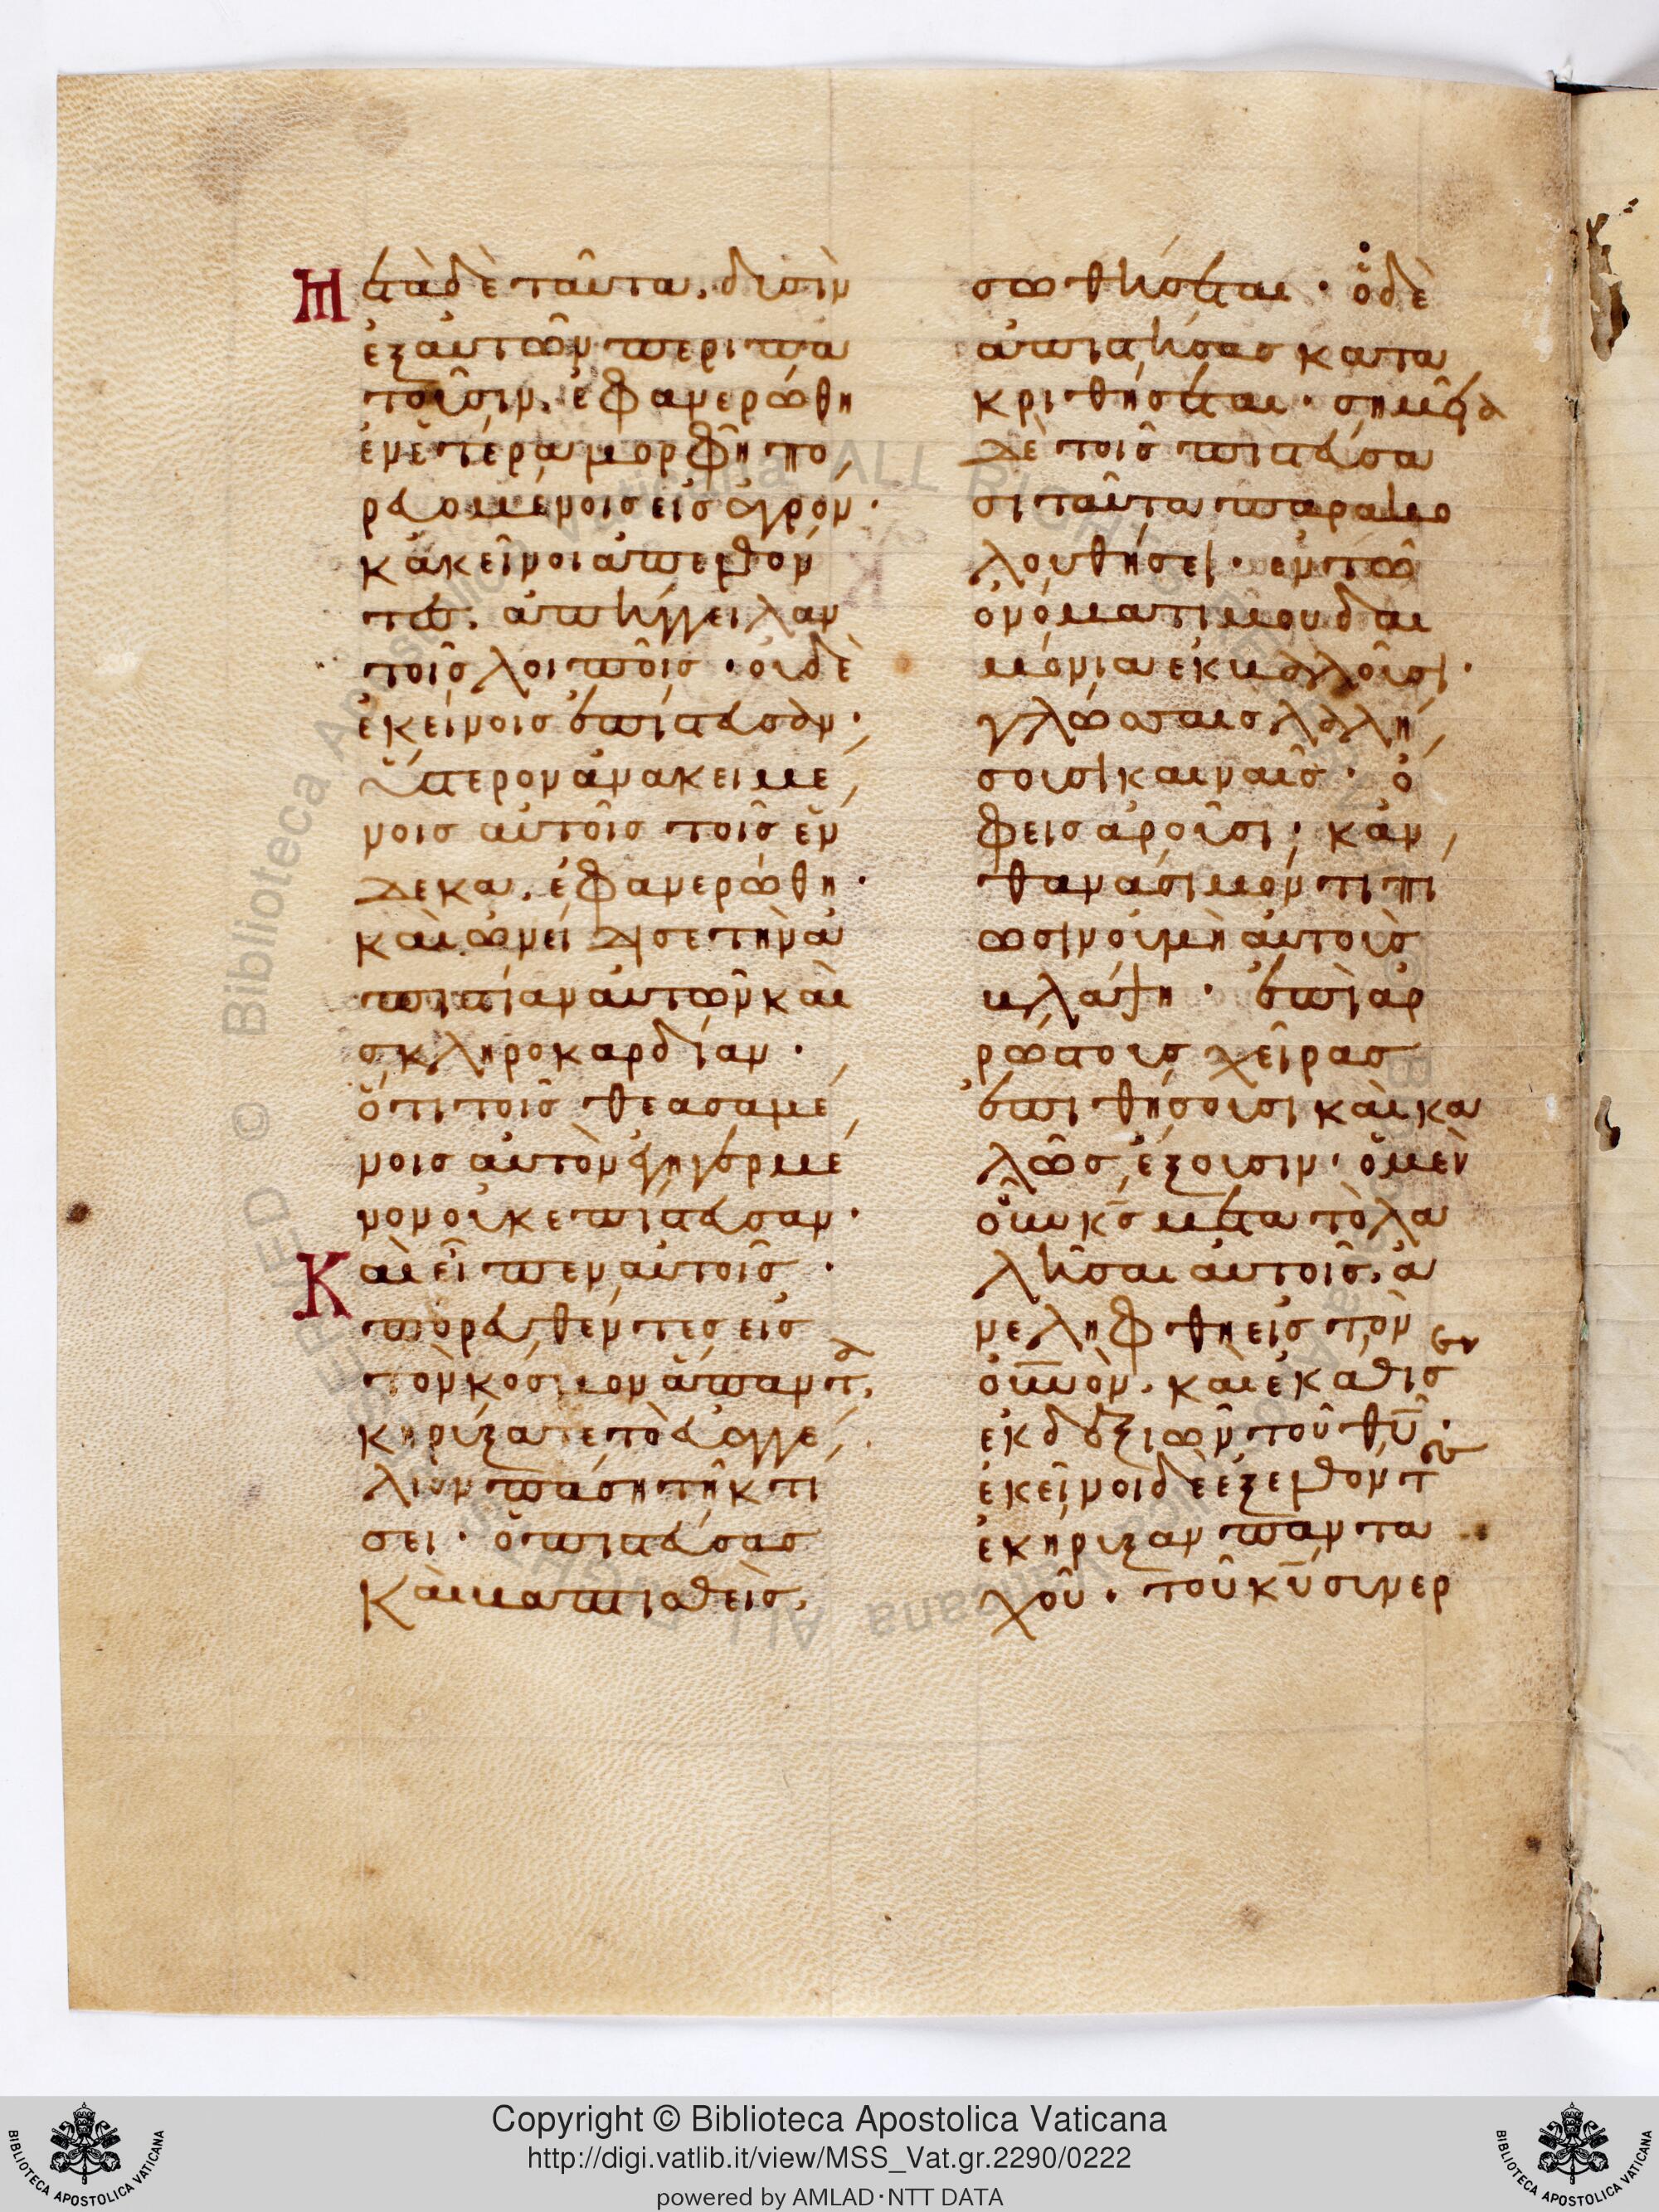 Μετὰ δὲ ταῦτα. δυσὶν
ἐξ αὐτῶν περιπα
τοῦσιν. ἐφανερώθη
ἐν ἑτέρα μορφῆ πο
ρευομένοις εἰς ἀγρόν·
κἀκεῖνοι ἀπελθόν
τες. ἀπήγγειλαν
τοῖς λοιποῖς· οὐδὲ
ἐκείνοις ἐπίστευσαν·
ὕστερον ἀνακειμέ
νοις αὐτοῖς τοῖς ἕν
δεκα. ἐφανερώθη·
καὶ ὠνείδισε τὴν ἀ
πιστίαν αὐτῶν καὶ
σκληροκαρδίαν·
ὅτι τοῖς θεασαμέ
νοις αὐτὸν ἐγηγερμέ
νον οὐκ ἐπίστευσαν·
Καὶ εἶπεν αὐτοῖς·
πορευθέντες εἰς
τὸν κόσμον ἅπαντα.
κηρύξατε τὸ εὐαγγέ
λιον πάση τῆ κτί
σει· ὁ πιστεύσας
καὶ βαπτισθεὶς.
σωθήσεται· ὁ δὲ
ἀπιστήσας κατα
κριθήσεται· σημεῖα
δὲ τοῖς πιστεύσα
σι ταῦτα παρακο
λουθήσει· ἐν τῶ
ὀνόματί μου δαι
μόνια ἐκβαλοῦσι·
γλώσσαις λαλή
σουσι καιναῖς· ὄ
φεις ἀροῦσι· κἂν
θανάσιμόν τι πί
ωσι, οὐ μὴ αὐτοὺς
βλάψη· ἐπὶ ἀρ
ρώστους χεῖρας
ἐπιθήσουσι καὶ κα
λῶς ἕξουσιν· ὁ μὲν
οὖν κς μετὰ τὸ λα
λῆσαι αὐτοῖς. ἀ
νελήφθη εἰς τὸν
οὐνὸν. καὶ ἐκάθισεν
ἐκ δεξιῶν τοῦ θυ·
ἐκεῖνοι δὲ ἐξελθόντες
ἐκήρυξαν παντα
χοῦ· τοῦ κυ συνερ
Copyright © Biblioteca Apostolica Vaticana
http://digi.vatlib.it/view/MSS_Vat.gr.2290/0222
powered by AMLAD·NTT DATA